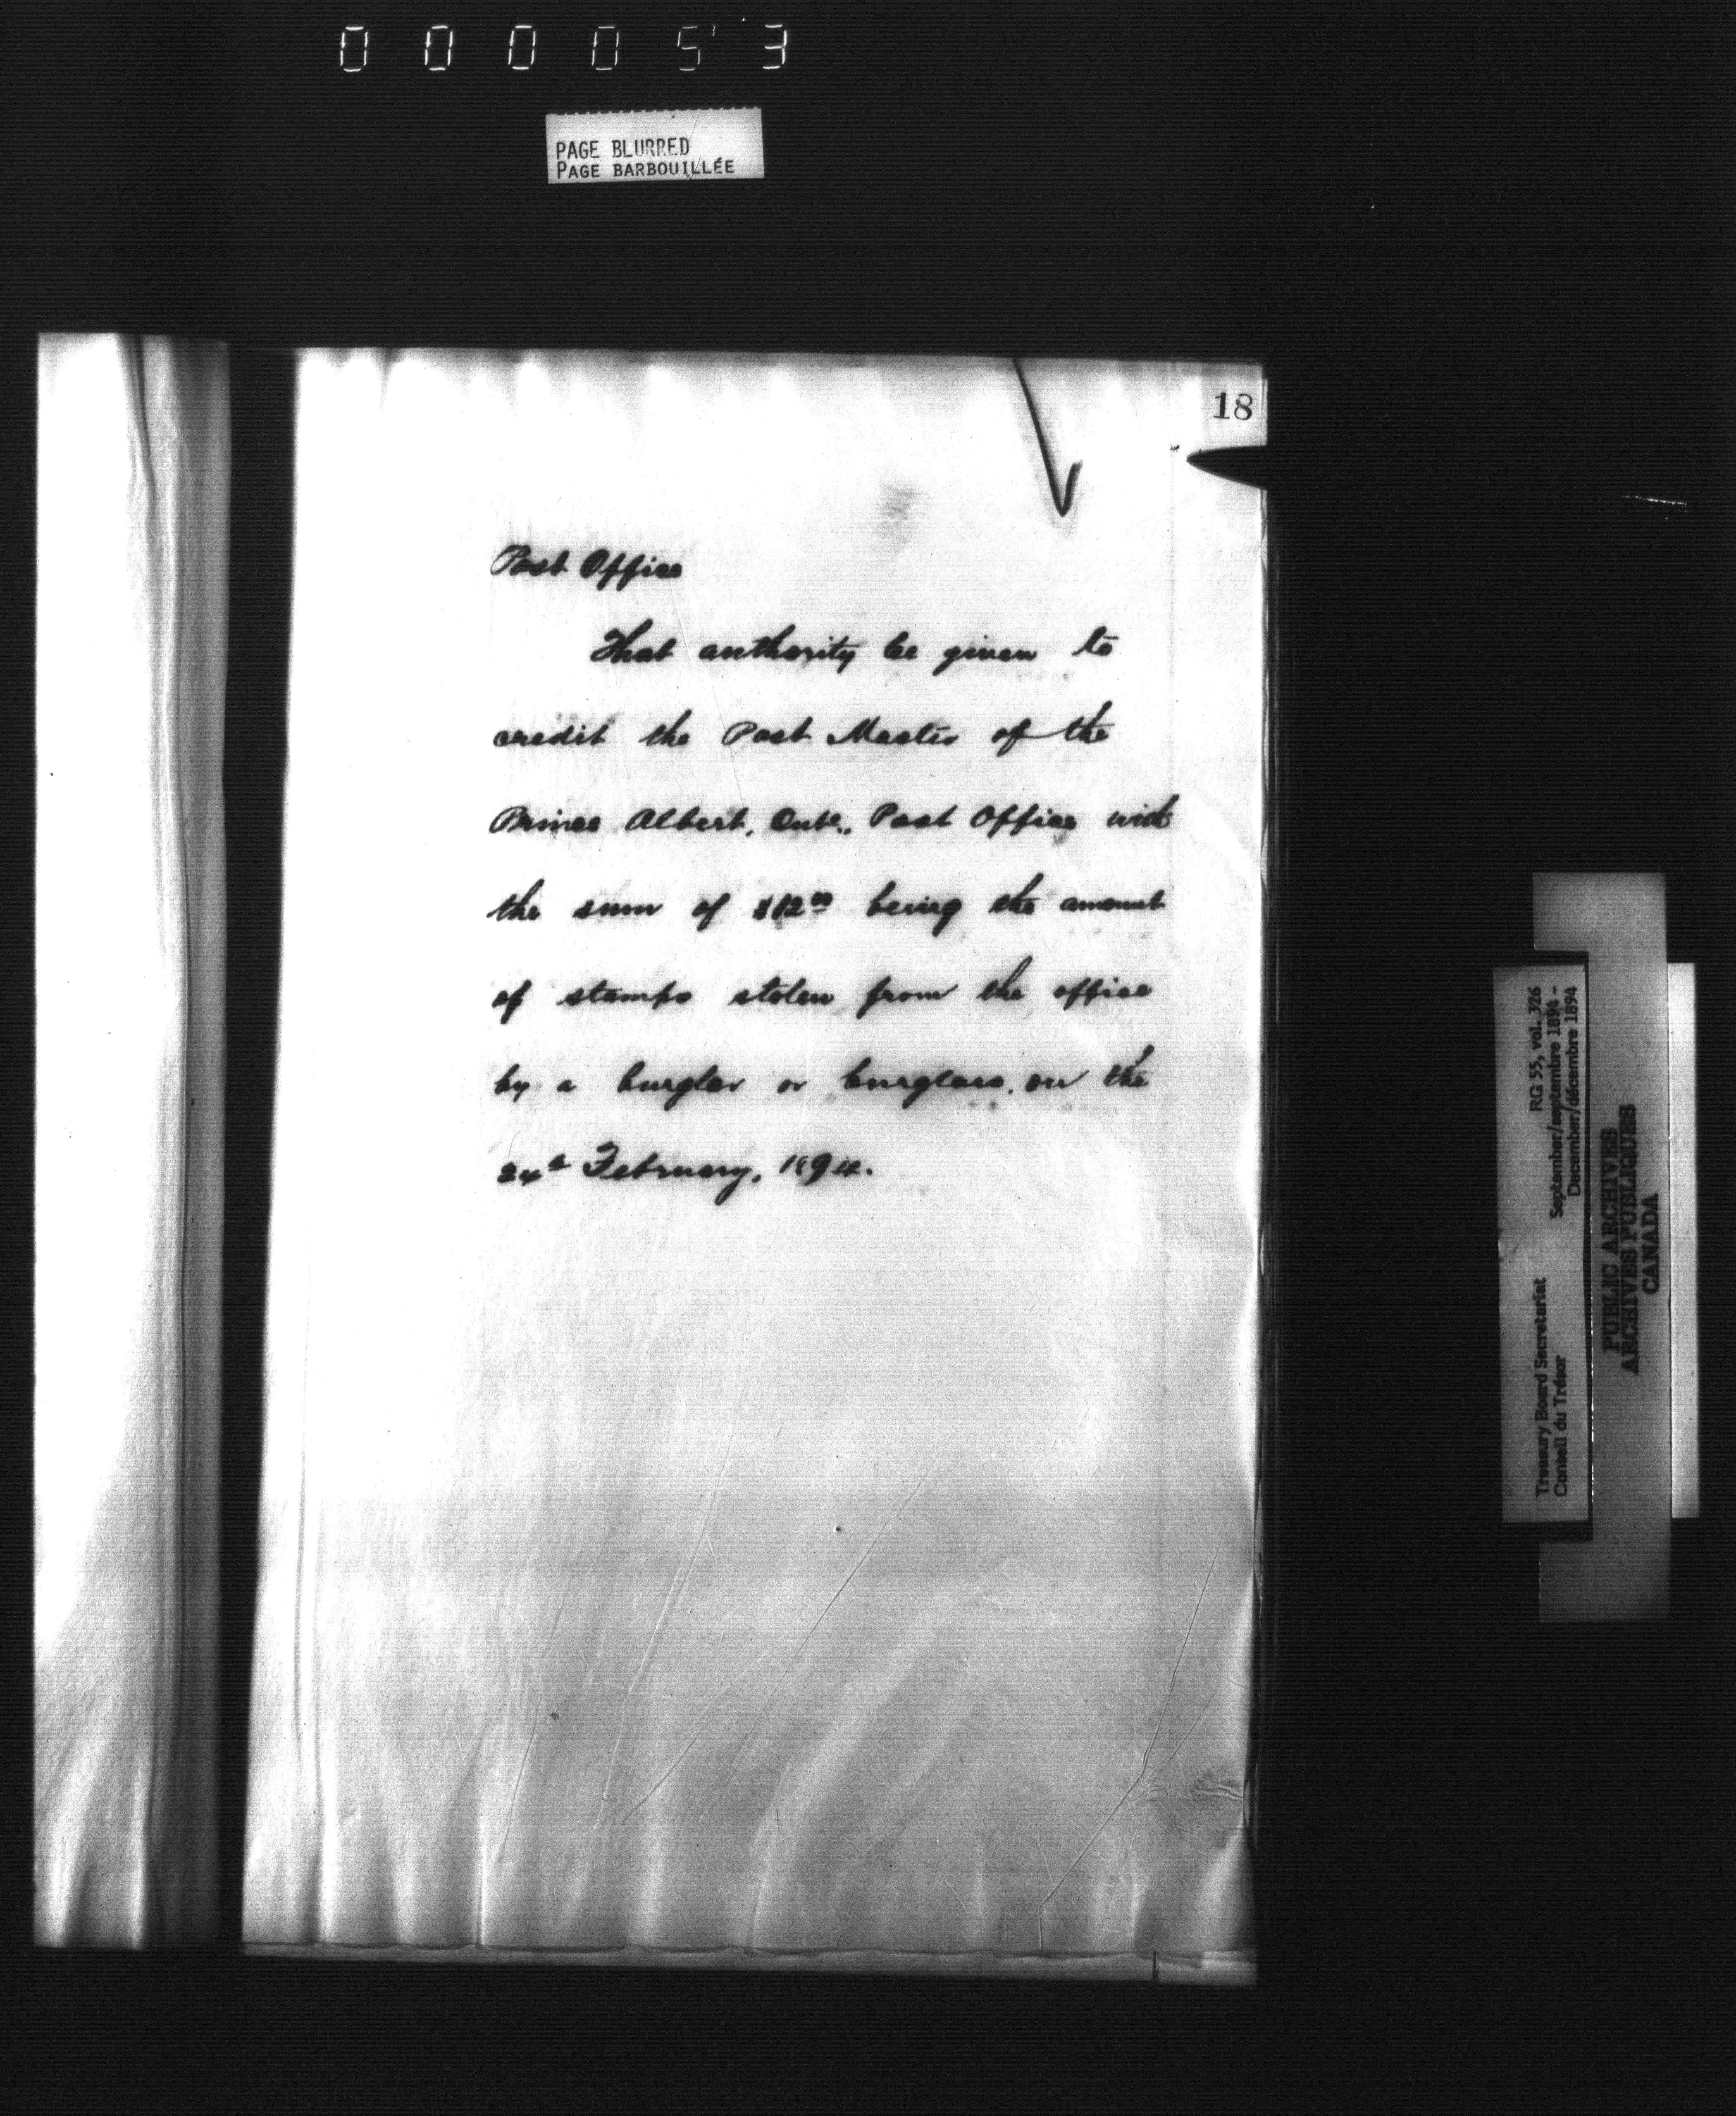 0 0 0 0 5 3
PAGE BLURRED
PAGE BARBOUILLÉE
18
Post Office
That authority be given to
credit the Post Master of the
Prince Albert, Ont., Post Office with
the sum of being the amount
of stamps stolen from the office
by a burglar or burglars, on the
24th February, 1894.
RG 55, vol. 326
September/septembre 1894 -
December/décembre 1894
Treasury Board Secretariat
Conseil du Trésor
PUBLIC ARCHIVES
ARCHIVES PUBLIQUES
CANADA